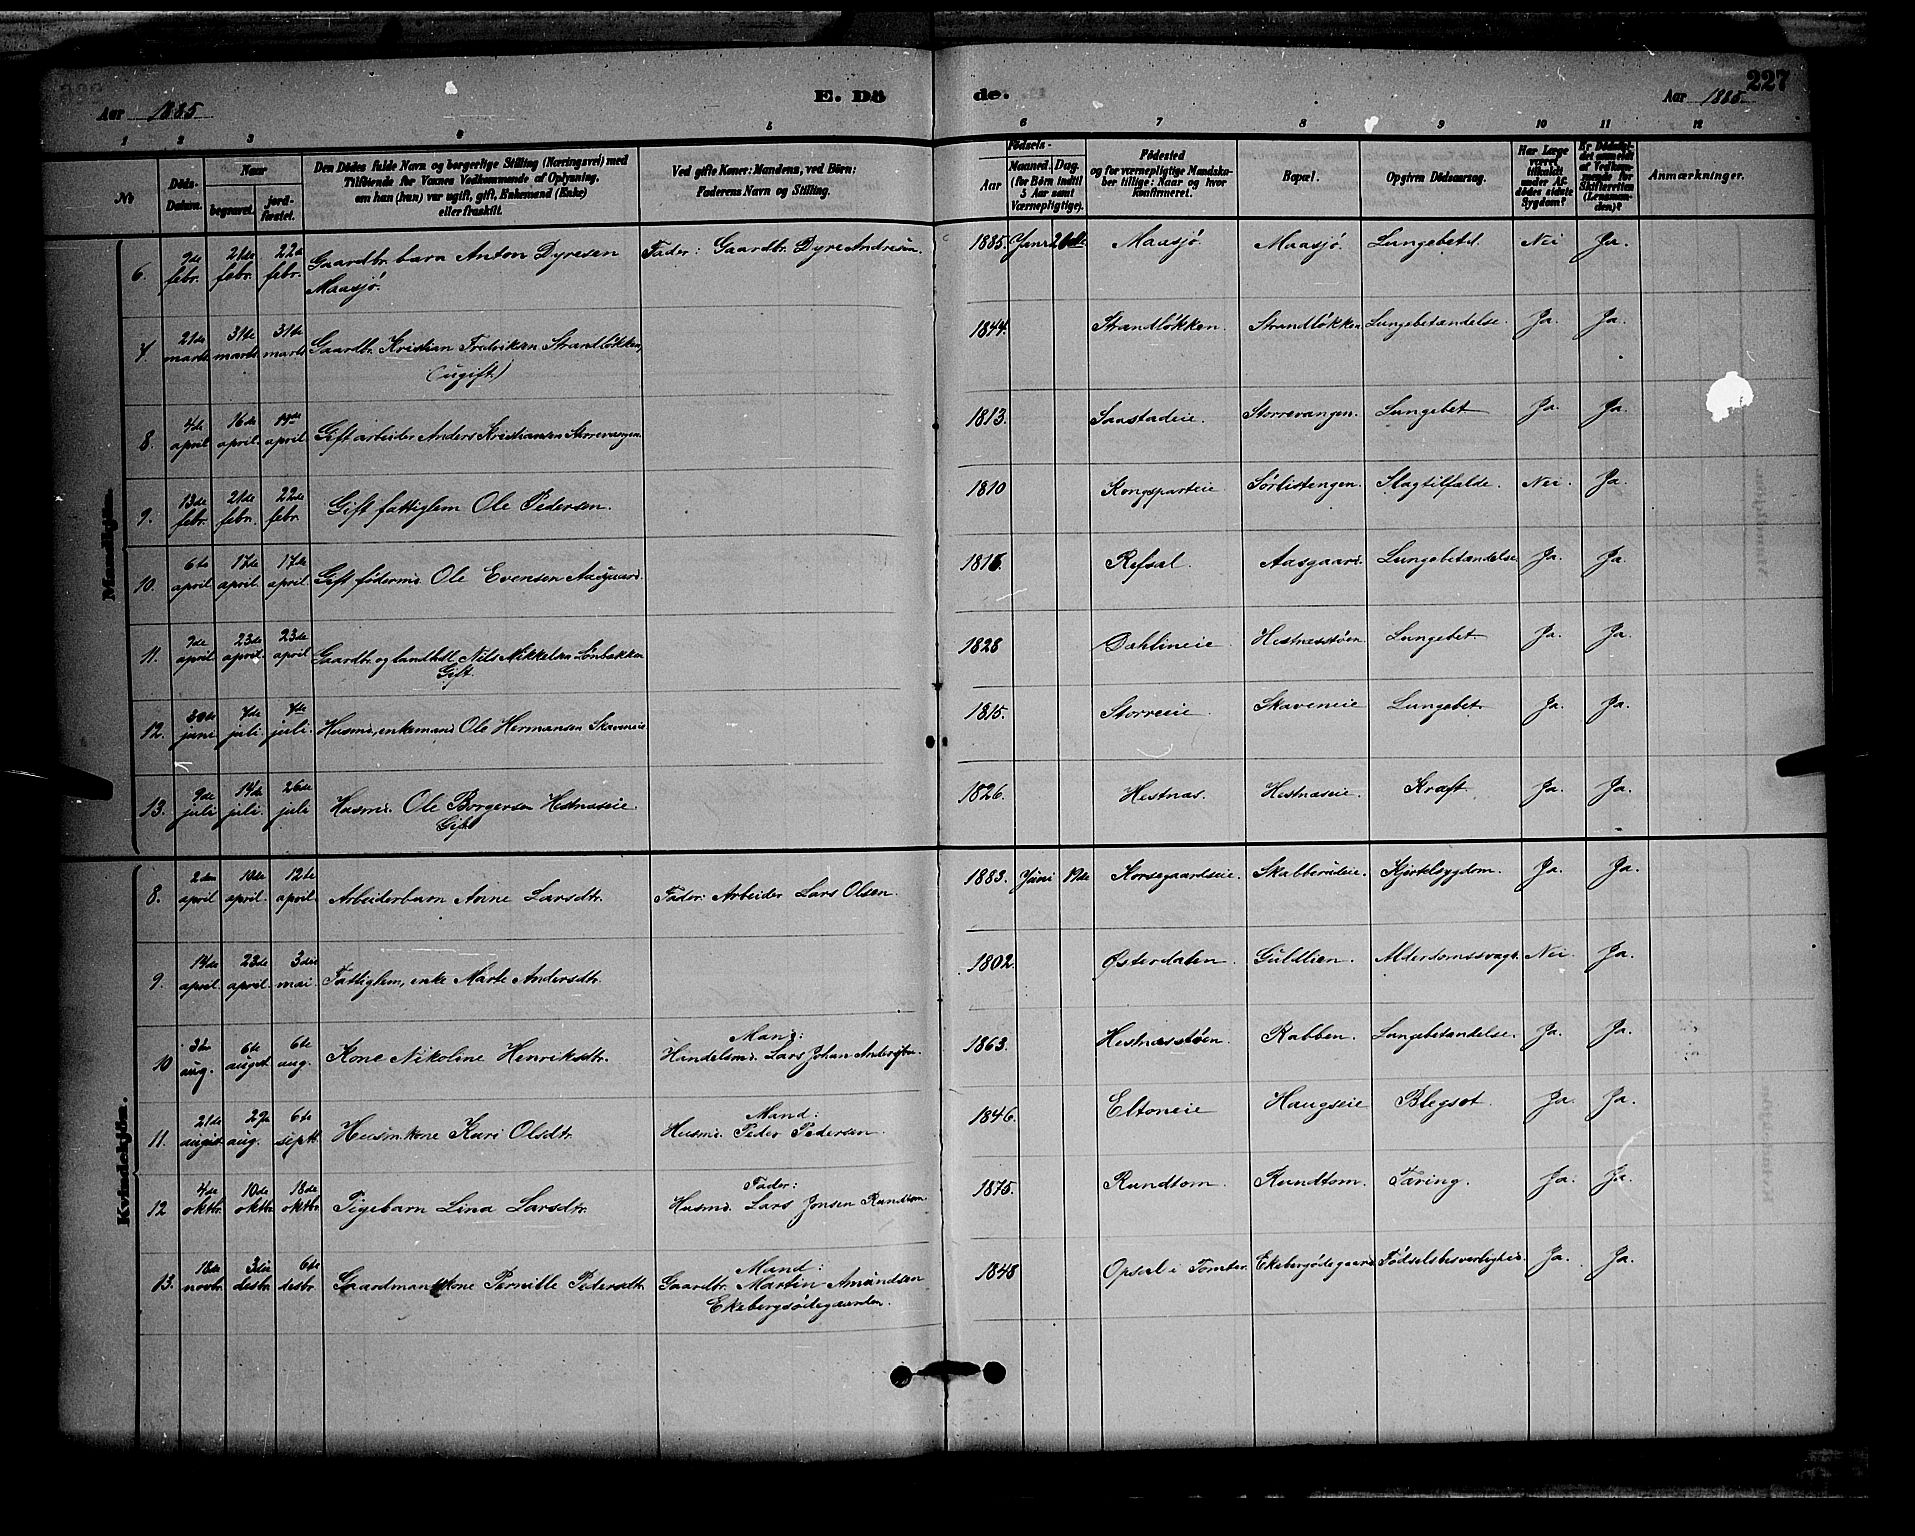 227
Aar 1885.
E. Dö
de.
Aar 1885.
1 2 3 5 6 6 7 8 9 10 11 12
No
Döds-Datum.
Naar
begravet.
jord-fæstet.
Den Dödes fulde Navn og borgerlige Stilling (Næringsvei) med
Tilföiende for Voxnes Vedkommende af Oplysning,
om han (hun) var ugift, gift, Enkemand (Enke)
eller fraskilt.
Ved gifte Koner: Mandens, ved Börn:
Faderens Navn og Stilling.
Födsels-
Aar
Maaned. Dag.
(for Börn indtil
5 Aar samt
Værnepligtige).
Födested
og for værnepligtige Mandskaber tillige: Naar og hvor
konfirmeret.
Bopæl.
Opgiven Dödsaarsag.
Har Læge været tilkaldt under Afdödes sidste Sygdom?
Er Dödsfaldet anmeldt af Vedkommende for Skifteretten (Lensmanden)?
Anmærkninger.
Mandkjön.
6. 9de febr. 21de febr. 22de febr. Gaardbr. barn Anton Dyresen Fader: Gaardbr. Dyre Andresen. 1885. Maasjø. Maasjø. Lungebet. Nei Ja.
Maasjø.
7. 21de marts 31de marts 31de marts Gaardbr. Kristian Fredriksen Strandløkken, 1844. Strandløkken. Strandløkken Lungebetændelse. Ja. Ja.
(ugift.)
8. 4de april 16de april april Gift arbeider Anders Kristiansen Storrevangen. 1813. Saastadeie. Storrevangen. Lungebet Ja. Ja.
9. 13de febr. 21de febr. 22de febr. Gift fattiglem Ole Pedersen. 1810 Kongsparteie Sørlistengen. Slagtilfælde. Nei. Ja.
10. 6te april 17de april. 17de april. Gift føderm. Ole Evensen Aasgaard. 1816. Refsal. Aasgaard. Lungebetændelse Ja. Ja.
11. 9de april 23de april. 23de april Gaardbr. og landhdl. Nils Mikkelsen Lønbakken 1828 Dahlineie Hestnesstøen Lungebet. Ja. Ja.
Gift.
12. 30de juni 7de juli 7de juli. Husmd., enkemand Ole Hermansen Skaveneie 1815. Storreeie. Skaveneie Lungebet. Ja. Ja.
13. 9de juli 14de juli. 26de juli Husmd. Ole Borgersen Hestnæseie. 1826. Hestnæs. Hestnæseie. Kræft. Ja. Ja.
Gift
Kvindekjön.
8. 2den april 10de april. 12te april. Arbeiderbarn Anne Larsdtr. Fader: Arbeider Lars Olsen. 1883. Juni 19de Korsegaardseie. Skabberudeie. Kjertelsygdom. Ja. Ja.
9. 14de april. 23de april. 3die mai. Fattiglem, enke Marte Andersdtr. 1802. Østerdalen. Guldlien. Alderdomssvagh. Nei. Ja.
10 3die aug. 6te august 6te aug. Kone Nikoline Henriksdtr. Mand:
Handelsmd. Lars Johan Andersen. 1863. Hestnesstøen. Rabben. Lungebetændelse. Ja. Ja.
11. 21de august 29 aug. 6te septr. Husmkone Kari Olsdtr. Mand:
Husmd. Peder Pedersen. 1846. Eltoneie Haugseie Blegsot. Ja. Ja.
12 4de oktbr. 10de oktbr. 18de oktbr. Pigebarn Lina Larsdtr. Fader:
Husmd. Lars Jensen Rundtom. 1875. Rundtom. Rundtom. Tæring. Ja. Ja.
13. 18de novbr. 3die desbr. 6te desbr. Gaardmandskone Pernille Pedersdtr. Mand:
Gaardbr. Martin Amundsen 1848 Opsal i Tomter. Ekebergødegaard Fødselsbesværlighed. Ja. Ja.
Ekebergsødegaarden.